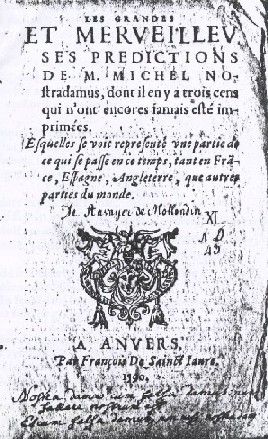 LES GRANDES
ET MERVEILLEV
SES PREDICTIONS
DE M. MICHEL NO-
stradamus, dont il en y a trois cens
qui n'ont encores iamais esté im-
primées.
Esquelles se voit representé vne partie de
ce qui se passe en ce temps, tant en Frã-
ce, Espagne, Angleterre, que autres
parties du monde.
de Mollondin
XI
A ANVERS,
Par François De Sainct Iaure.
1590.
Nostra damus cum falsa damus nam
fallere nostrum est